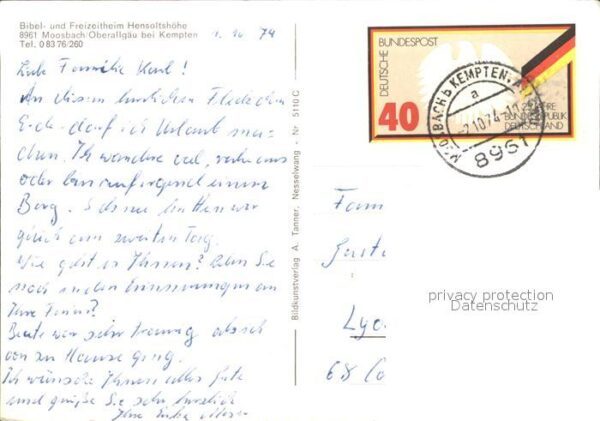 Bibel- und Freizeitheim Hensoltshöhe
8961 Moosbach/Oberallgäu bei Kempten
Tel. 0 83 76/260
1. 10 74
Liebe Familie
An diesem herrlichen Fleckchen
Erde darf ich Urlaub ma-
chen. Ich wandere viel,
oder bin auf irgend einem
Berg. Schnee hatten wir
gleich am zweiten Tag.
Wie geht es Ihnen? Leben Sie
noch in den Erinnerungen an
Ihre Ferien?
Beate war sehr traurig als ich
von zu Hause ging.
Ich wünsche Ihnen alles Gute
und grüße Sie sehr herzlich
Ihre
Bildkunstverlag A. Tanner, Nesselwang · Nr 5110 C
DEUTSCHE BUNDESPOST
40
25 JAHRE
BUNDESREPUBLIK
DEUTSCHLAND
MOOSBACH b KEMPTEN
a
-2.10.74
8961
Fam
Lyo
68 Co
privacy protection
Datenschutz